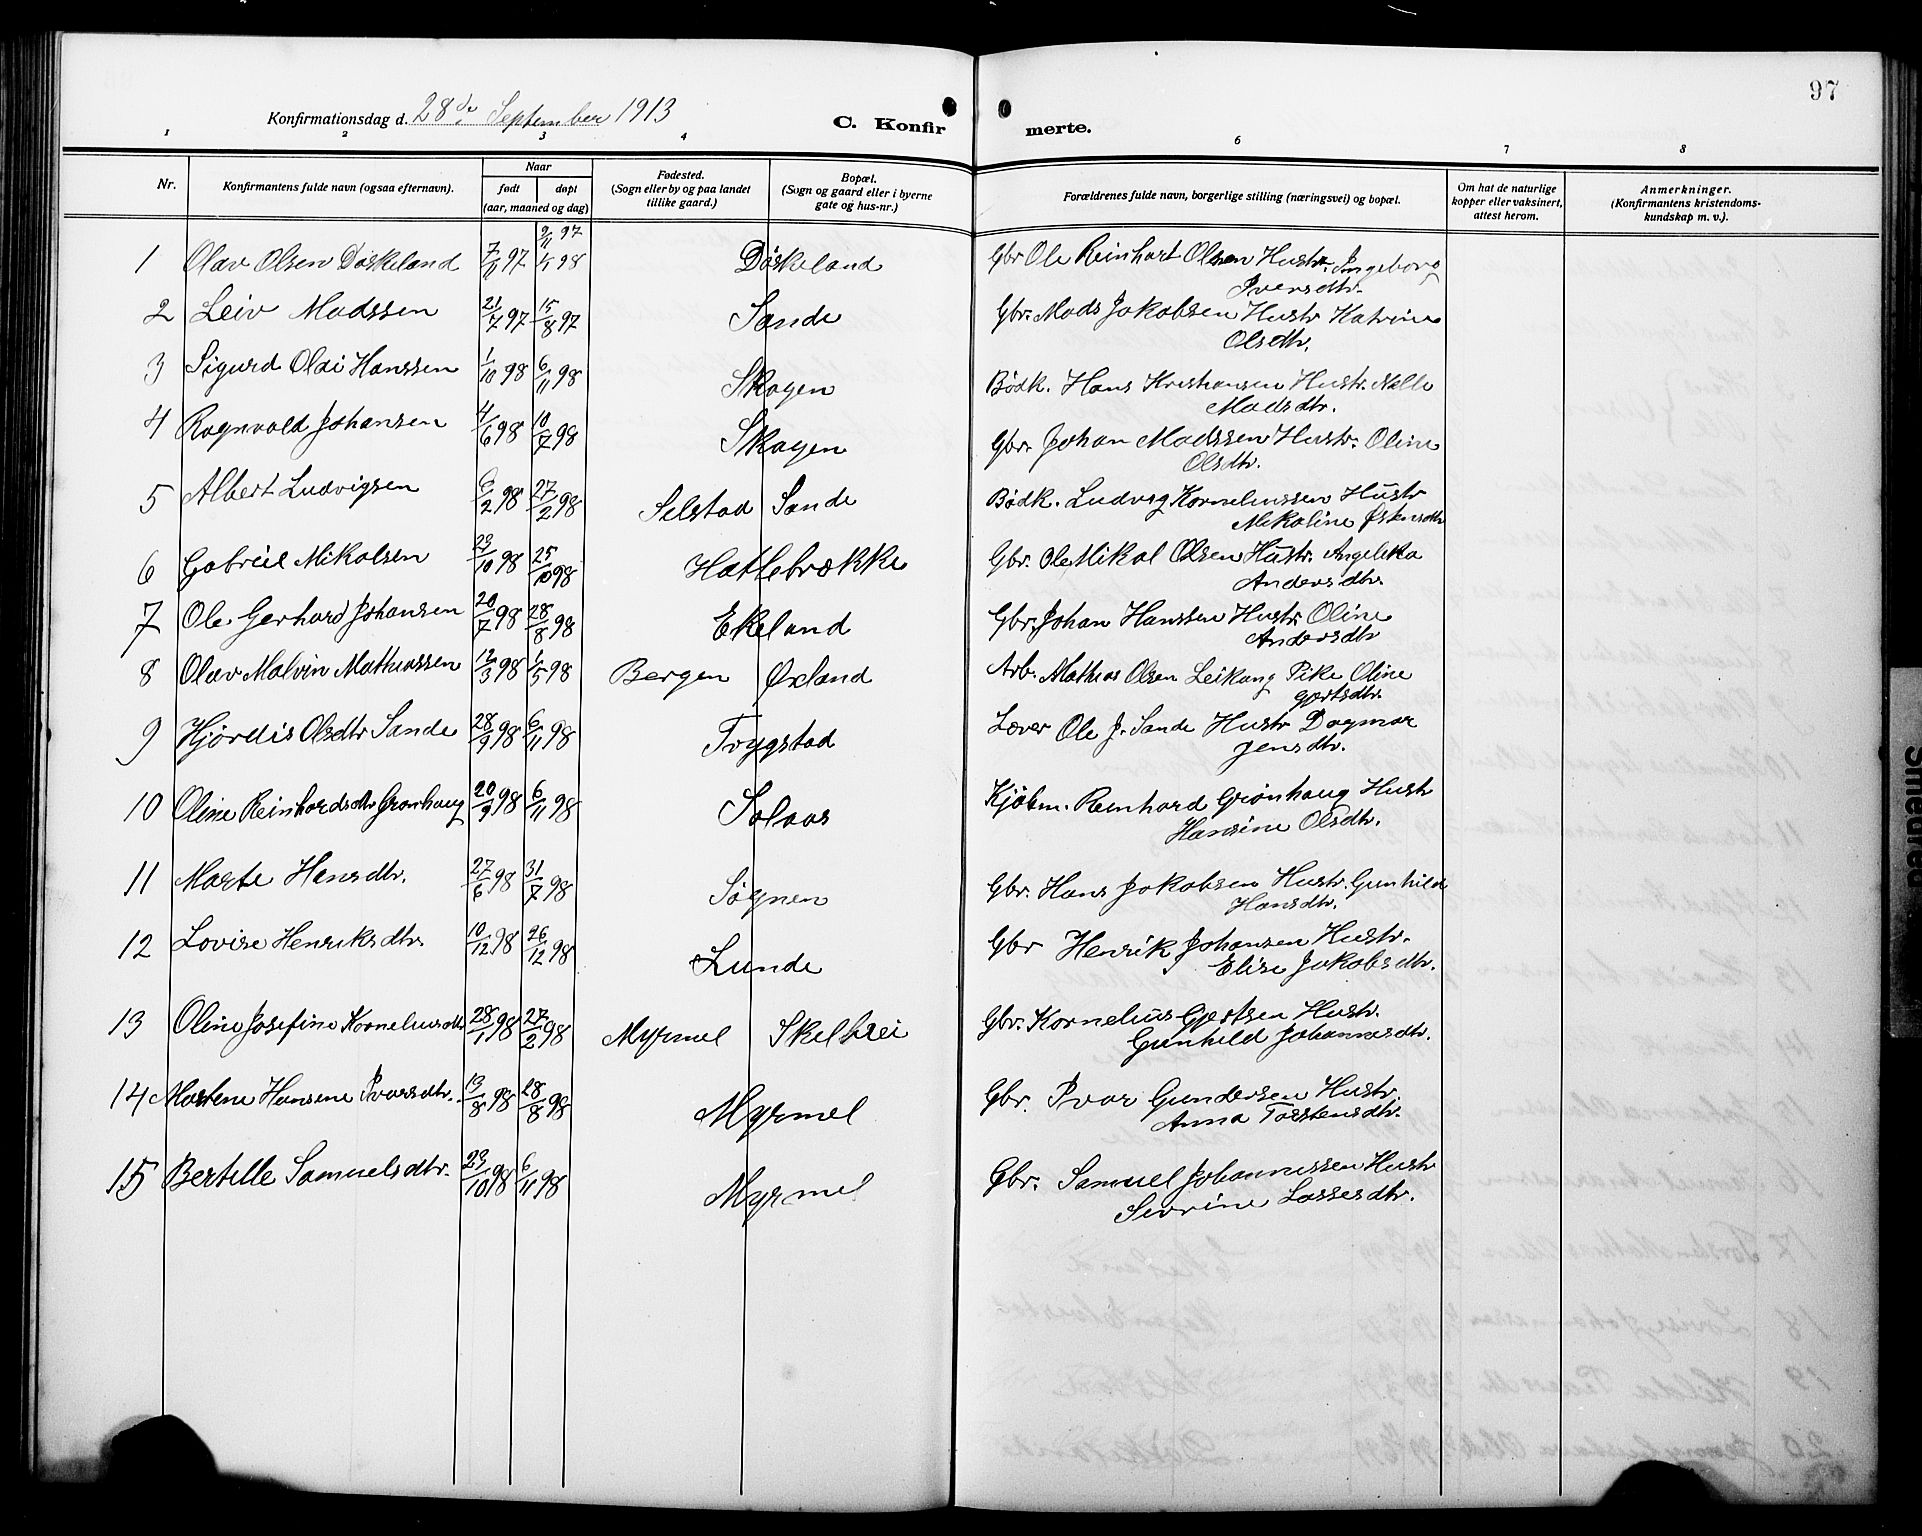 97
Konfirmationsdag d. 28de September 1913
C. Konfir merte.
1 2 3 4 6 7 8
Nr.
Konfirmantens fulde navn (ogsaa efternavn).
Naar
født døpt
(aar, maaned og dag)
Fødested.
(Sogn eller by og paa landet
tillike gaard.)
Bopæl.
(Sogn og gaard eller i byerne
gate og hus-nr.)
Forældrenes fulde navn, borgerlige stilling (næringsvei) og bopæl.
Om hat de naturlige
kopper eller vaksinert,
attest herom.
Anmerkninger.
(Konfirmantens kristendoms-
kundskap m. v.).
1 Olav Olsen Døskeland 97 98 Døskeland Gbr Ole Reinhart Olsen Hustr. Ingeborg
Iversdtr.
2 Leiv Madssen 21/7 97 15/8 97 Sande Gbr. Mads Jakobsen Hustr Katrine
Olsdtr.
3 Sigurd Olai Hanssen 1/10 98 6/11 98 Skagen Bødk. Hans Kristiansen Hustr. Nelle
Madsdtr.
4 Ragnvald Johansen 4/6 98 10/7 98 Skagen Gbr. Johan Madssen Hustr. Oline
Olsdtr.
5 Albert Ludvigsen 6/2 98 27/2 98 Selstad Sande Bødk. Ludvig Korneliussen Hustr
Nikoline Østensdtr
6 Gabriel Mikalsen 23/10 98 25/10 98 Hatlebrække Gbr. Ole Mikal Olsen Hustr. Angelika
Andersdtr
7 Ole Gerhard Johansen 20/7 98 28/8 98 Ekeland Gbr. Johan Hanssen Hustr Oline
Andersdtr
8 Olav Malvin Mathiassen 12/3 98 1/5 98 Bergen Øxland Arb. Mathias Olsen Leikang Pike Oline
Gjertsdtr.
9 Hjørdis Olsdtr Sande 28/9 98 6/11 98 Trygstad Lærer Ole J. Sande Hustr Dagmar
Jensdtr.
10 Oline Reinhardsdtr Grønhaug 20/9 98 6/11 98 Solaas Kjøbm. Reinhard Grønhaug Hustr
Hansine Olsdtr.
11 Marte Hansdtr. 27/6 98 31/7 98 Søgnen Gbr. Hans Jakobsen Hustr. Gunhild
Hansdtr.
12 Lovise Henriksdtr 10/12 98 26/12 98 Lunde Gbr Henrik Johansen Hustr.
Elise Jakobsdtr.
13 Oline Josefine Korneliusdtr 28/1 98 27/2 98 Myrmel Skelbrei Gbr. Kornelius Gjertsen Hustr.
Gunhild Johannesdtr.
14 Martene Hansene Ivarsdtr. 13/8 98 28/8 98 Myrmel Gbr. Ivar Gundersen Hustr.
Anna Torstensdtr.
15 Bertille Samuelsdtr. 23/10 98 6/11 98 Myrmel Gbr. Samuel Johannessen Hustr
Sevrine Lassesdtr.